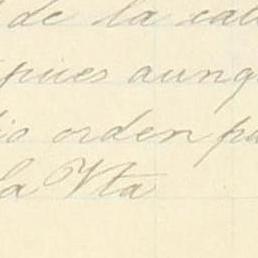 de la cal
pues aunq
io orden pa
la Vta